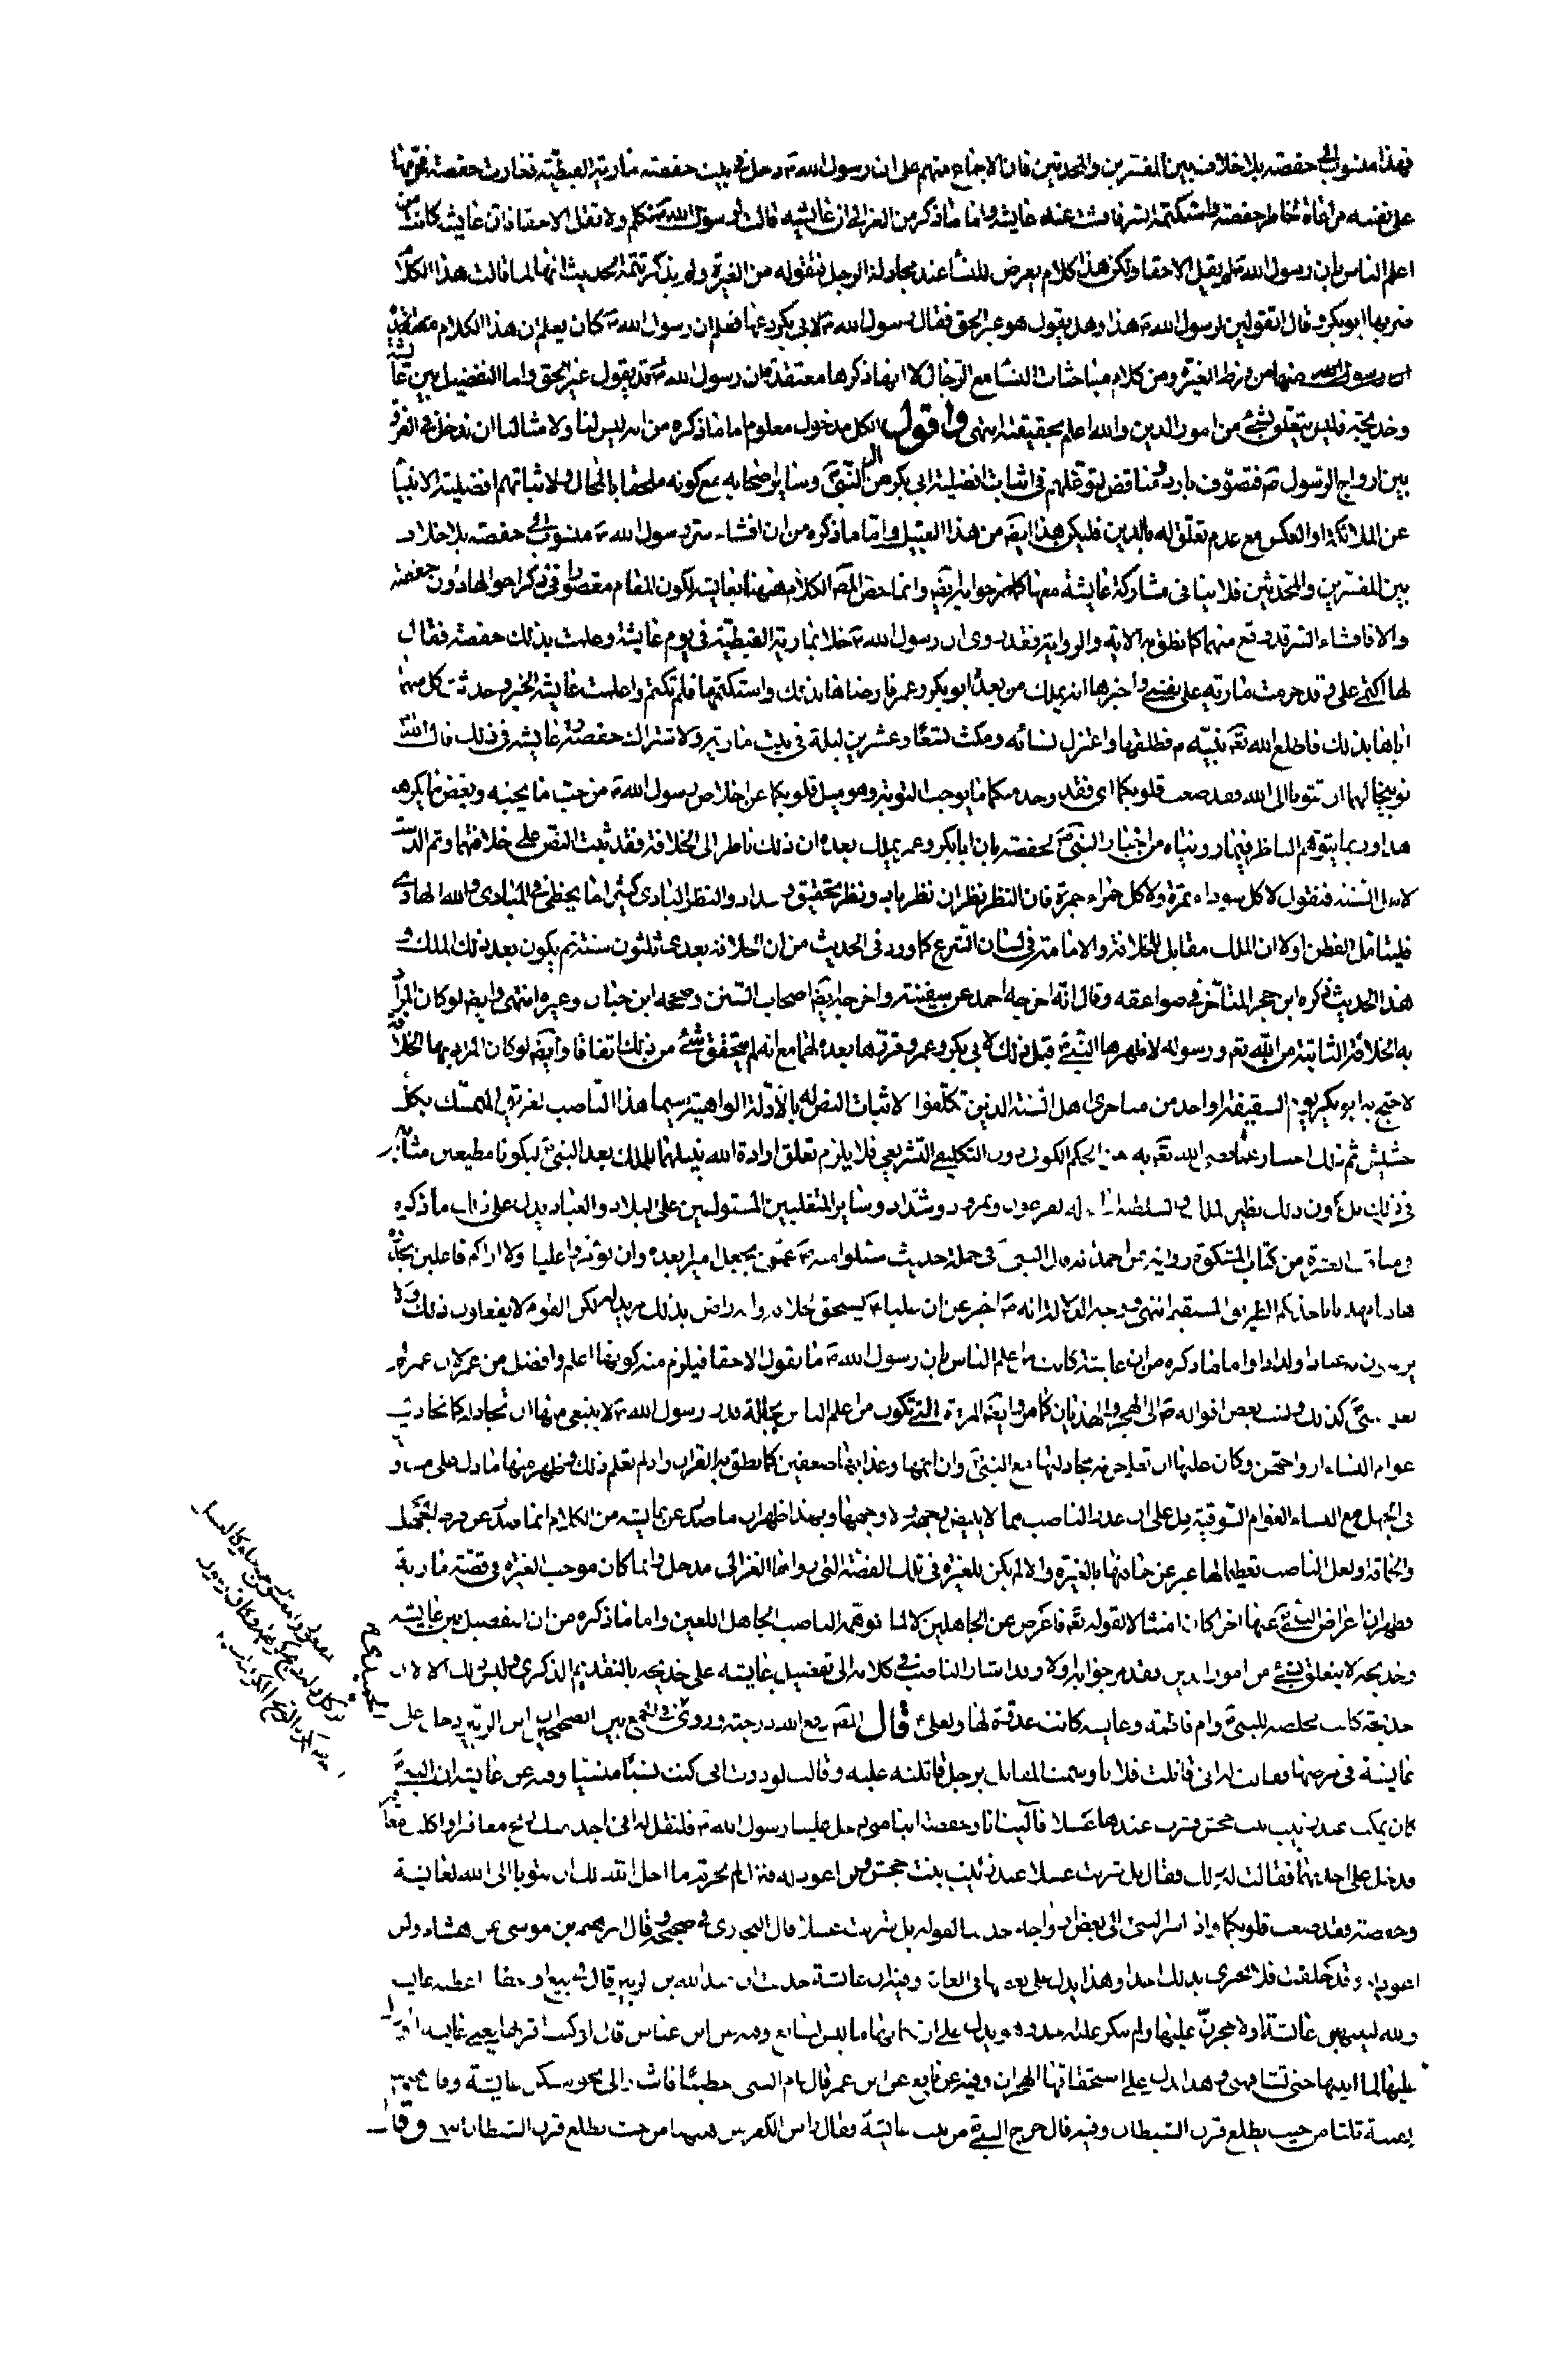 فهذا منسوب الى حفصته بلا خلاف بين المفسرين والمحدثين فان الاجماع منهم على ان رسول الله ص دخل في بيت حفصته مارية القبطيّة فغارت حفصة فحرّمها
على نفسه مراعاة لخاطر حفصته واستكتمه السر فافشت عند عايشة واما ما ذكر من الغزالي ان عايشه قالت لرسول الله ص تكلم ولا تقل الا حقا فان عايشه كانت من
اعلم الناس بان رسول الله ص لم يقل الا حقا ولكن هذا كلام يعرض للنسأ عند مجادلة الرجل فتقوله من الغيرة ولم يذكر تتمة الحديث انها لما قالت هذا الكلام
ضربها ابو بكر وقال اتقولين لرسول الله ص هذا وهل يقول هو غير الحق فقال رسول الله ص لابي بكر دعها فعلم ان رسول الله ص كان يعلم ان هذا الكلام
منها من فرط الغيرة ومن كلام مباحثات النسأ مع الرجال لا انها ذكرها معتقدة بان رسول الله ص قد يقول غير الحق واما التفضيل بين عايشة
وخديجة فليس يتعلق بشئ من امور الدين والله اعلم بحقيقته انتهى واقول الكل مدخول معلوم اما ما ذكره من انه ليس لنا ولا مثالنا ان ندخل في الفرق
بين ازواج الرسول ص فتصوّف بارد مناقض لتوغلهم في اثبات افضلية ابي بكر من النبي وساير اصحابه مع كونه ملحقا بالمحال ولا ثباتهم افضلية الانبيا
عن الملائكة او العكس مع عدم تعلق له بالدين فليكن هذا ايضه من هذا القبيل واما ما ذكره من ان افشاء سر رسول الله ص منسوب الى حفصته بلا خلاف
بين المفسرين والمحدثين فلا ينافى مشاركة عايشة معها كما مر جوابه ايضه وانما خص المص الكلام ههنا بعايشه لكون المقام مقصورا في ذكر احوالها دون حفصته
والا فافشاء السر قد وقع منهما كما نطق به الاية والرواية فقد روى ان رسول الله ص خلا بمارية القبطيّة في يوم عايشة وعلمت بذلك حفصته فقال
لها اكتمي على وقد حرمت مارية على نفسي واخبرها انه يملك من بعده ابو بكر وعمر فارضاها بذلك واستكتمها فلم تكتم واعلمت عايشة الخبر وحدثت كل منهما
اباها بذلك فاطلع الله تعه نبيّه ص فطلقها واعتزل نسائه ومكث تسعًا وعشرين ليلة في بيت مارية ولاشتراك حفصة وعايشه في ذلك قال الله
توبيخا لهما ان تتوبا الى الله فقد صغت قلوبكما اى فقد وجد منكما ما يوجب التوبة وهو ميل قلوبكما عن اخلاص رسول الله ص من حب ما يحبّه وبغض ما يكرهه
هذا وربما يتوهم الناظر فيما رويناه من اخبار النبي ص لحفصته بان ابا بكر وعمر يملك بعده ان ذلك ناظر الى الخلافة فقد ثبت النص على خلافتهما وتم الدست
لاهل السنه فنقول لا كل سوداء تمرة ولا كل حمراء جمرة فان النظر نظران نظر بادٍ ونظر تحقيق وسداد والنظر البادى كثيرا ما يخطى في المبادى والله الهادى
فليتامل الفطن اولا ان الملك مقابل للخلافة والامامة في لسان الشرع كما ورد في الحديث من ان الخلافة بعدى ثلثون سنة ثم يكون بعد ذلك الملك و
هذا الحديث ذكره ابن حجر المتأخر في صواعقه وقال انه اخرجه احمد عن سفينته واخرجه ايضا اصحاب السنن وصححه ابن حبان وغيره انتهى وايضه لو كان المراد
به الخلافة الثابتة من الله تعه ورسوله لاظهرها النبي ص قبل ذلك لابي بكر وعمر وقررها بعده لهما مع انه لم يتحقق شئ من ذلك اتفاقا وايضه لو كان المراد بها الخلافة
لاحتج به ابو بكر يوم السقيفة او احد من متاخرى اهل السنة الذين تكلفوا لاثبات النص له بالادلة الواهية سيما هذا الناصب الغريق المتمسك بكل
حشيش ثم ذلك اخبار عما قضى الله تعه به من الحكم الكونى دون التكليفى التشريعى فلا يلزم تعلق ارادة الله بنيلهما للملك بعد النبي ص ليكونا مطيعين مثابين
في ذلك بل يكون ذلك نظير الملك والسلطنة لفرعون ونمرود وشداد وساير المتغلبين المستولين على البلاد والعباد يدل على ذلك ما ذكره
في مناقب العشرة من كتاب المشكوة رواية عن احمد انه قال النبي في جملة حديث سئلوا منه ص عمّن يجعل اميرا بعده وان تؤمروا عليا ولا اراكم فاعلين تجدوه
هاديا مهديا ياخذ بكم الطريق المستقيم انتهى ووجه الدلالة انه ص اخبر عن ان عليا ع يستحق الخلافة وانه راض بذلك مريد له لكن القوم لا يفعلون ذلك ولا
يريدون عنادا ولدادا واما ما ذكره من ان عايشة كانت من اعلم الناس بان رسول الله ص ما يقول الا حقا فيلزم منه كونها اعلم وافضل من عمر لان عمر لم
يعتقد كذلك ونسب بعض اقواله ص الى الهجر والهذيان كما مر وايضه المرءة التي تكون من اعلم الناس بجلالة قدر رسول الله ص لا ينبغى منها ان تجادله كما تجادل
عوام النساء ازواجهن وكان عليها ان تعلم حرمة مجادلتها مع النبي ص وان اثمها وعذابها ضعفين كما نطق به القران واذ لم تعلم ذلك وظهر منها ما دل على مساواتها
في الجهل مع النساء العوام السوقية دل على ان عذر الناصب مما لا يبيض وجهه ولا وجهها وبهذا ظهر ان ما صدر عن عايشه من الكلام انما صدر عن فرط الجهل
والحماقة ولعل الناصب تعظيما لها عبر عن حماقتها بالغيرة والا لم يكن للغيرة في تلك القصة التي رواها الغزالى مدخل وانما كان موجب الغيرة في قصّة مارية
وظهر ان اعراض النبي ص عنها اخر كان امتثالا لقوله تعه فاعرض عن الجاهلين لا لما توهّمه الناصب الجاهل اللعين واما ما ذكره من ان التفصيل بين عايشه
وخديجه لا يتعلق بشئ من امور الدين فقد مر جوابه اولا وقد اشار الناصب في كلامه الى تفضيل عايشه على خديجه بالتقديم الذكرى
خديجة كانت مخلصه للنبي ص وام فاطمه وعايشه كانت عدوّة لها ولعلى ع قال المص رفع الله درجته وروى في الجمع بين الصحيحين ان ابن الزبير دخل على
عايشة في مرضها فقالت له انى قاتلت فلانا وسمت المقاتل برجل قاتلته عليه وقالت لوددت انى كنت نسيًا منسيّا وفيه عن عايشه ان النبي
كان يمكث عند زينب بنت جحش وشرب عندها عسلا فآليت انا وحفصة ان ايتنا دخل عليها رسول الله ص فلتقل له انى اجد منك ريح مغافير اكلت مغافير
فدخل على احديهما فقالت له ذلك فقال بل شربت عسلا عند زينب بنت جحش ولن اعود له فنزل لم تحرم ما احل الله لك ان تتوبا الى الله لعايشة
وحفصة فقد صغت قلوبكما واذ اسر النبي الى بعض ازواجه حديثا لقوله بل شربت عسلا قال البخارى في صحيحه وقال ابرهيم بن موسى عن هشام ولن
اعود له وقد حلفت فلا تخبرى بذلك احدا وهذا يدل على نقصها في الغاية وفيه ان عايشة حدثت ان عبد الله بن الزبير قال في بيع او عطا اعطته عايشه
والله لتنتهين عايشة او لاحجرنّ عليها
عليها فلما ابدتها حتى تشافهنى وهذا يدل على استحقاقها الهجران وفيه عن نافع عن ابن عمر قال قام النبي خطيبًا فاشار الى نحو مسكن عايشة وقال ههنا
الفتنة ثلثا من حيث يطلع قرن الشيطان وفيه قال خرج النبي ص من بيت عايشة وقال راس الكفر من ههنا من حيث يطلع قرن الشيطان وقال